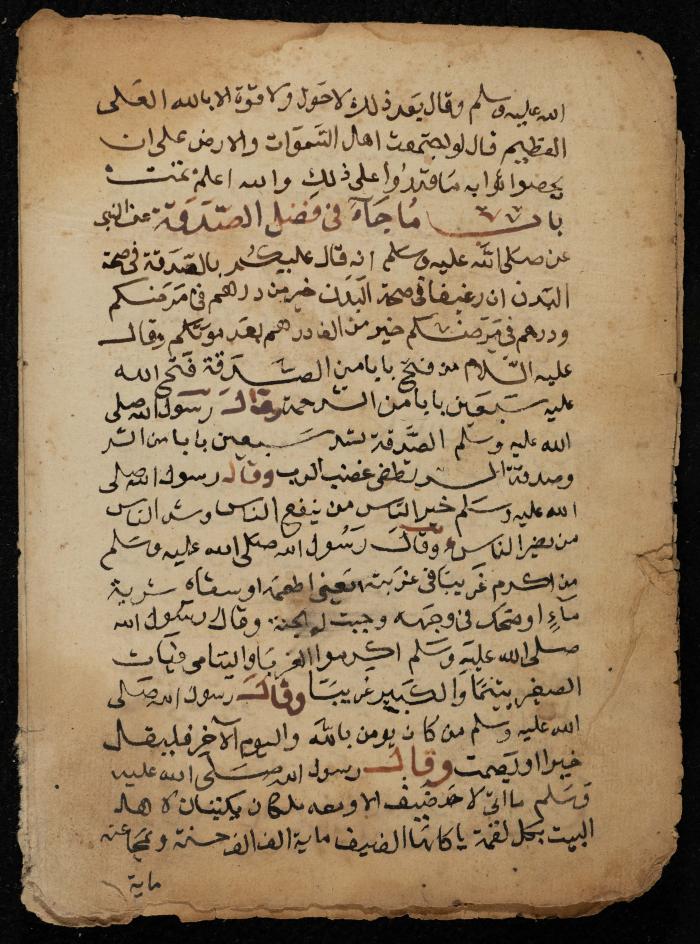 الله عليه وسلم وقال بعد ذلك لا حول ولا قوة الا بالله العلى
العظيم قال لو اجتمعت اهل السموات والارض على ان
يحصوا ثوابه ما قدروا على ذلك والله اعلم تمت
باب ما جاء فى فضل الصدقة عن النبى
عن صلى الله عليه وسلم انه قال عليكم بالصدقة فى صحة
البدن ان رغيفا فى صحة البدن خير من درهم فى مرضكم
ودرهم فى مرضكم خير من الف درهم بعد موتكم وقال
عليه السلام من فتح بابا من الصدقة فتح الله
عليه سبعين بابا من الرحمة وقال رسول الله صلى
الله عليه وسلم الصدقة تسد سبعين بابا من الشر
وصدقة السر تطفى غضب الرب وقال رسول الله صلى
الله عليه وسلم خير الناس من ينفع الناس وشر الناس
من يضر الناس وقال رسول الله صلى الله عليه وسلم
من اكرم غريبا فى غربته يعنى اطعمه او سقاه شربة
ماء او ضحك فى وجهه وجبت له الجنة وقال رسول الله
صلى الله عليه وسلم اكرموا الغربا واليتامى
الصغير يتيما والكبير غريبا وقال رسول الله صلى
الله عليه وسلم من كان يومن بالله واليوم الآخر فليقل
خيرا او يصمت وقال رسول الله صلى الله عليه
وسلم ما اتى لاحد ضيف الا ومعه ملكان يكتبان لاهل
البيت بكل لقمة ياكلها الضيف ماية الف الف حسنة ويمحا عنه
ماية